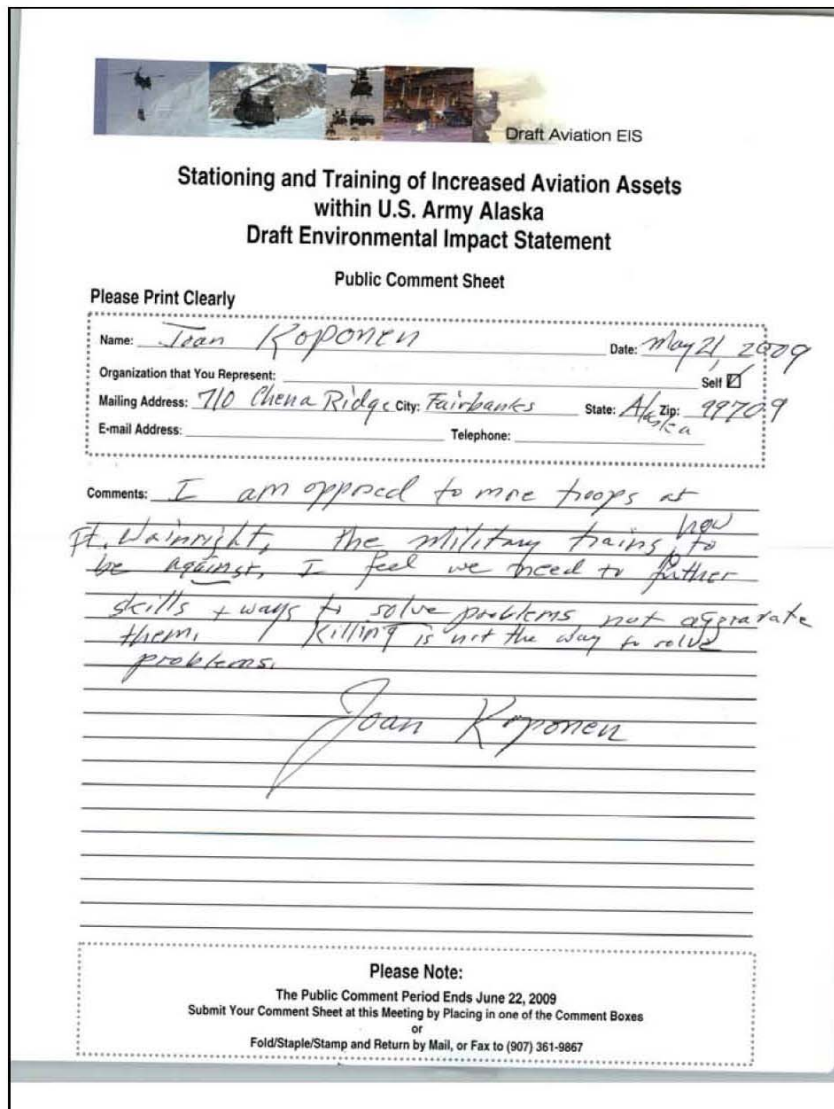 Draft Aviation EIS
Stationing and Training of Increased Aviation Assets
within U.S. Army Alaska
Draft Environmental Impact Statement
Public Comment Sheet
Please Print Clearly
Name: Joan Koponen Date: May 21, 2009
Organization that You Represent: Self ☑
Mailing Address: 710 Chena Ridge City: Fairbanks State: Alaska Zip: 99709
E-mail Address: Telephone:
Comments: I am opposed to more troops at
Ft. Wainright, the military trains how to
be against, I feel we need to further
skills + ways to solve problems not aggravate
them. Killing is not the way to solve
problems.
Joan Koponen
Please Note:
The Public Comment Period Ends June 22, 2009
Submit Your Comment Sheet at this Meeting by Placing in one of the Comment Boxes
or
Fold/Staple/Stamp and Return by Mail, or Fax to (907) 361-9867